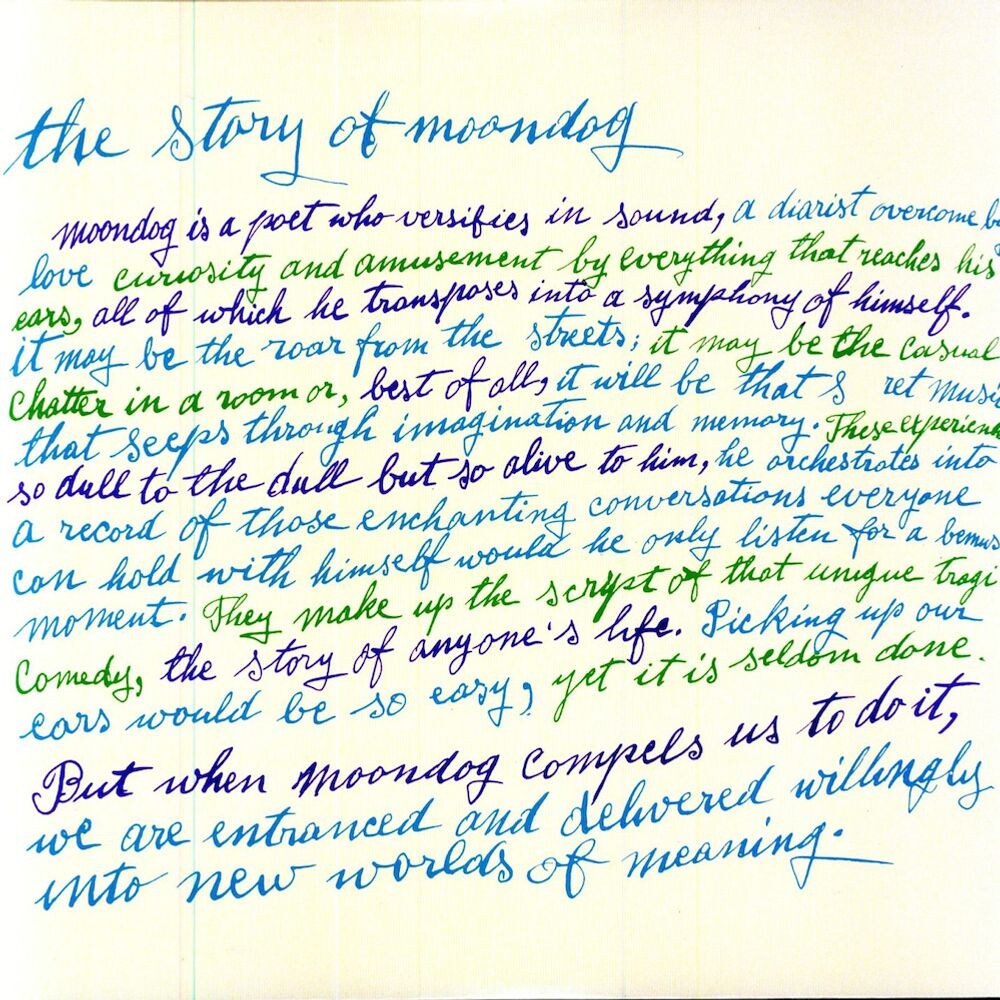 the Story of moondog
Moondog is a poet who versifies in sound, a diarist overcome
love curiosity and amusement by everything that reaches his
ears, all of which he transposes into a symphony of himself.
it may be the roar from the streets; it may be the casual
Chatter in a room or, best of all, it will be that musi
that seeps through imagination and memory. These experien
so dull to the dull but so alive to him, he orchestrates into
a record of those enchanting conversations everyone
can hold with himself would he only listen for a bemus
moment. They make up the script of that unique tragi
Comedy, the story of anyone's life. Picking up our
ears would be so easy, yet it is seldom done.
But when Moondog compels us to do it,
we are entranced and delivered willingly
into new worlds of meaning.